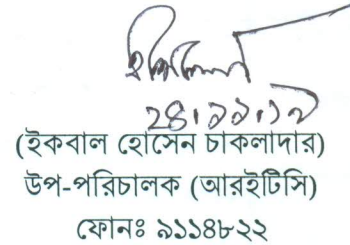 ২৪.১১.১৯
(ইকবাল হোসেন চাকলাদার)
উপ-পরিচালক (আরইটিসি)
ফোনঃ ৯১১৪৮২২